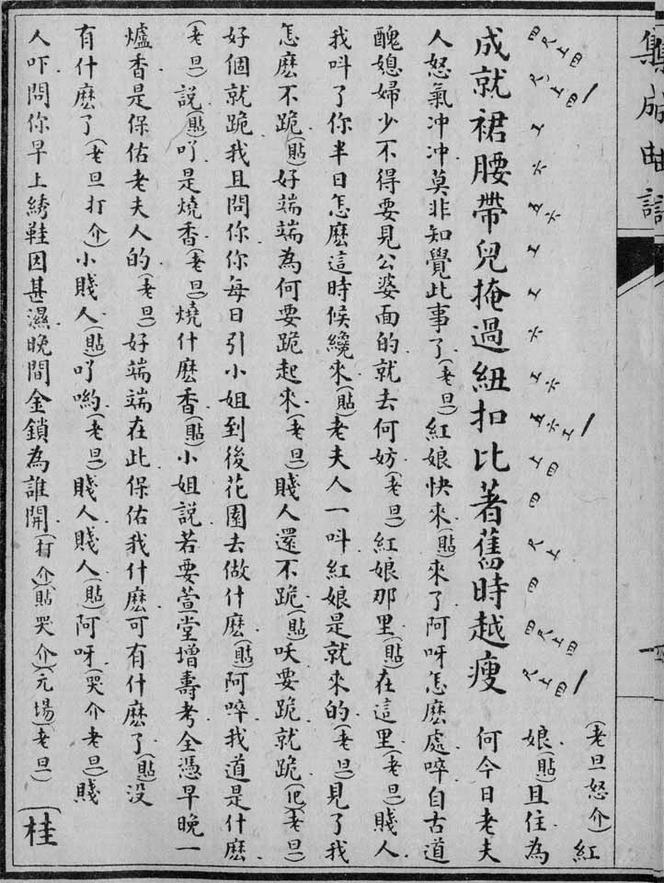 集成曲譜
(老旦怒介)紅
娘(貼)且住為
成就裙腰帶兒掩過紐扣比著舊時越瘦 何今日老夫
人怒氣冲冲莫非知覺此事了(老旦)紅娘快來(貼)來了阿呀怎麽處啐自古道
醜媳婦少不得要見公婆面的就去何妨(老旦)紅娘那里(貼)在這里(老旦)賤人
我呌了你半日怎麽這時候纔來(貼)老夫人一呌紅娘是就來的(老旦)見了我
怎麽不跪(貼)好端端為何要跪起來(老旦)賤人還不跪(貼)要跪就跪(老旦)
好個就跪我且問你你每日引小姐到後花園去做什麽(貼)阿啐我道是什麽
(老旦)說(貼)吖是燒香(老旦)燒什麽香(貼)小姐說若要萱堂增壽考全憑早晚一
爐香是保佑老夫人的(老旦)好端端在此保佑我什麽可有什麽了(貼)没
有什麽了(老旦打介)小賤人(貼)吖喲(老旦)賤人賤人(貼)阿呀(哭介老旦)賤
人吓問你早上綉鞋因甚濕晚間金鎖為誰開(打介)(貼哭介)(元場)(老旦)
桂